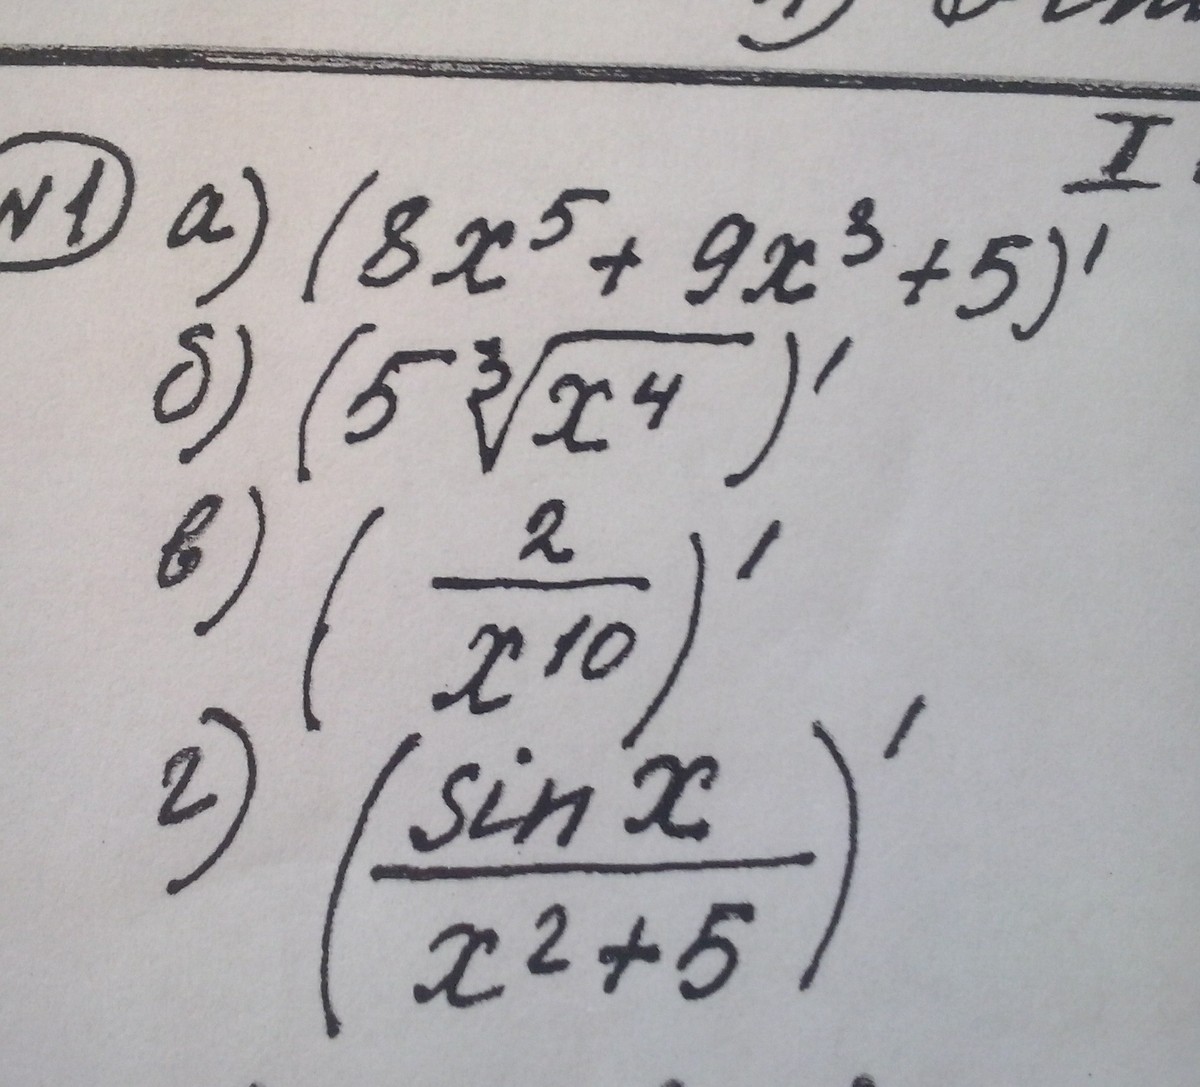 I
№1 а) (8x⁵ + 9x³ + 5)′
б) (5 ∛x⁴)′
в) (2/x¹⁰)′
г) (sin x/x² + 5)′